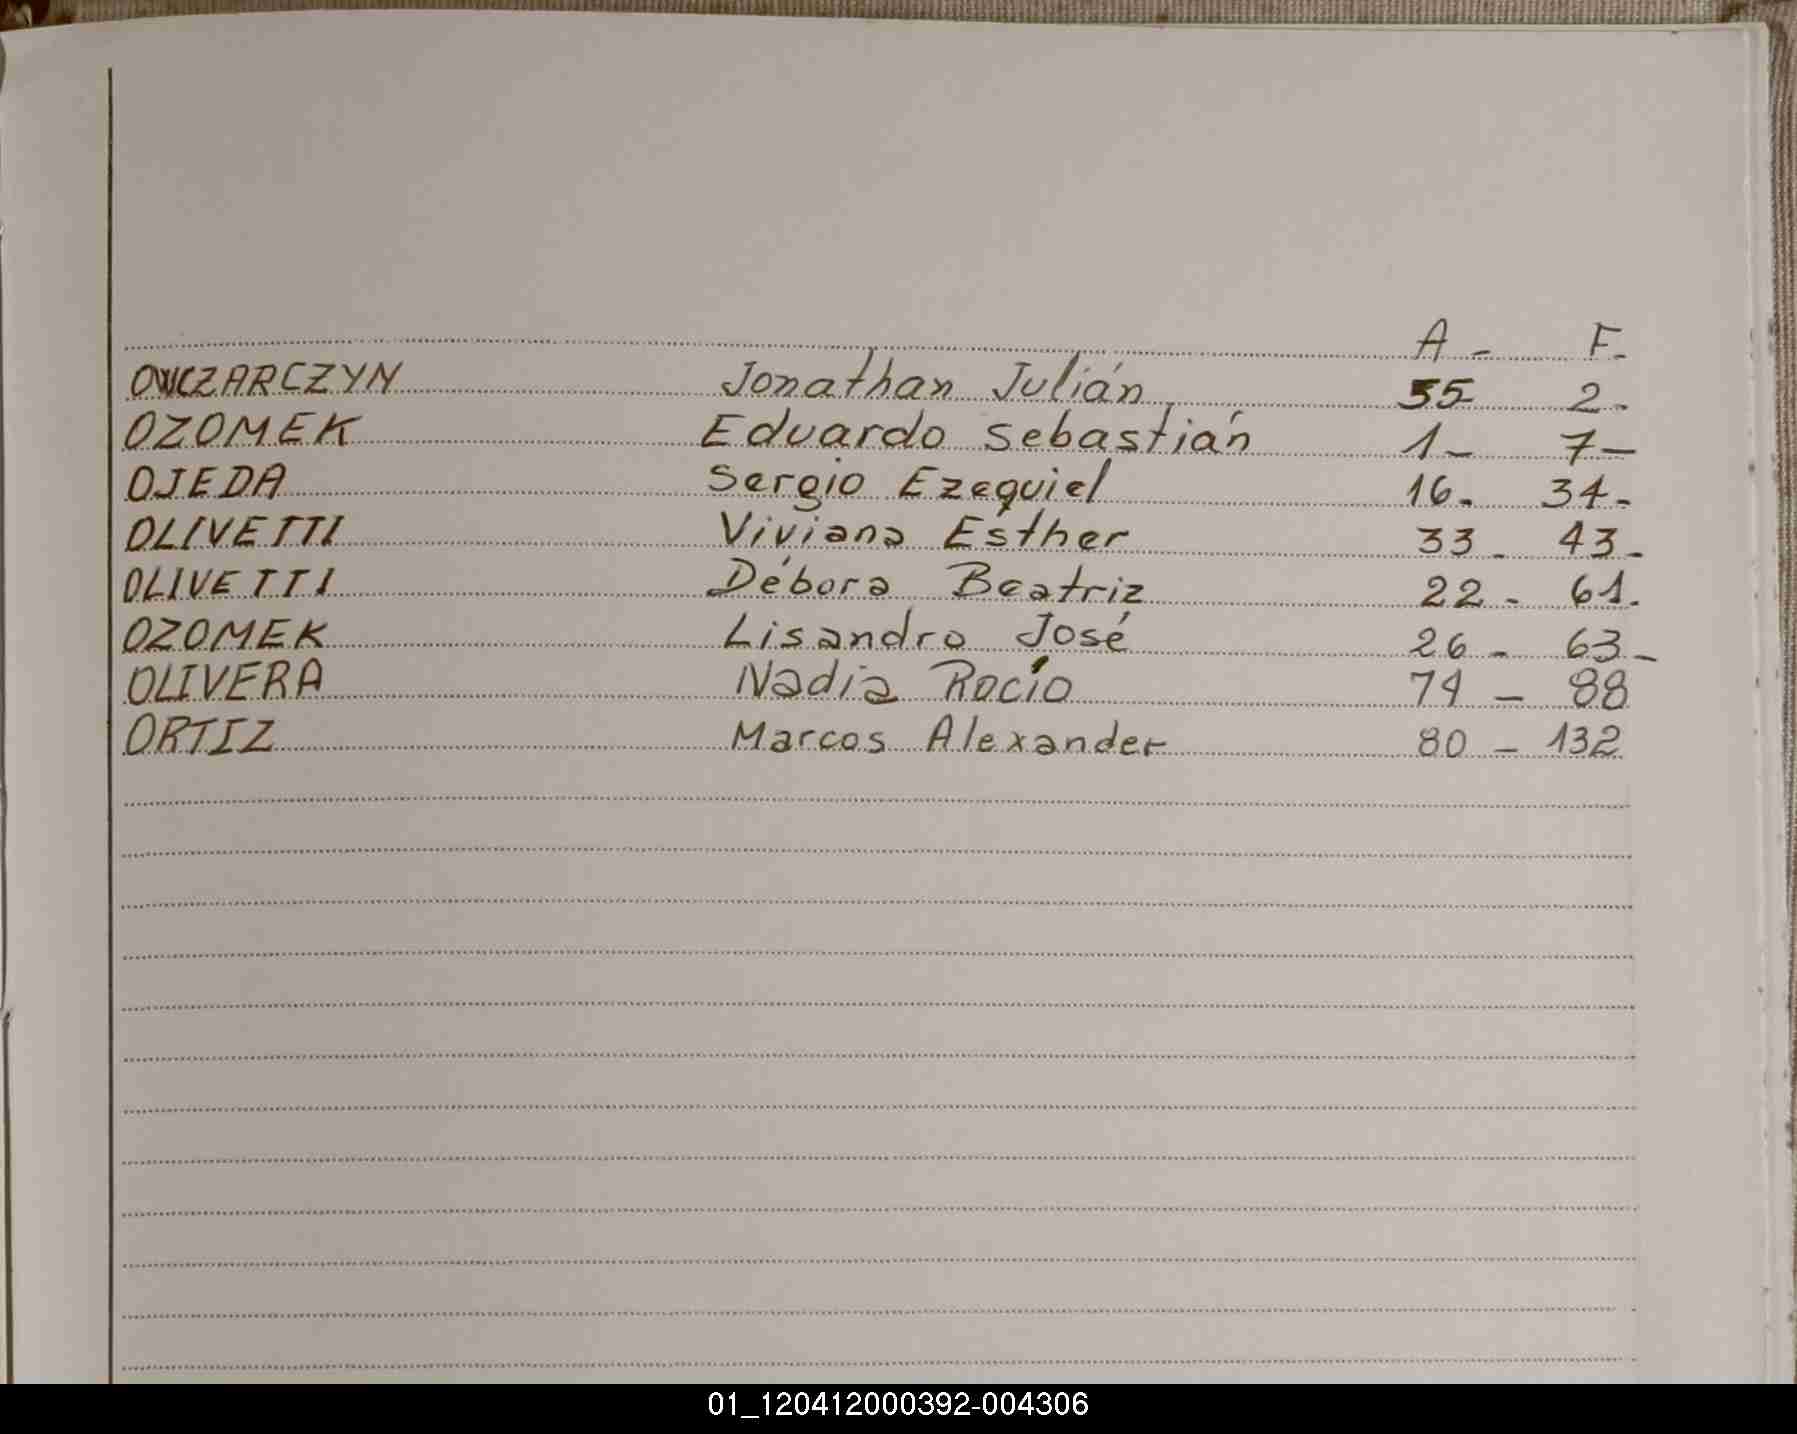 A - F.
OWCZARCZYN Jonathan Julián 55 2-
OZOMEK Eduardo Sebastián 1- 7-
OJEDA Sergio Ezequiel 16- 34-
OLIVETTI Viviana Esther 33- 43-
OLIVETTI Débora Beatriz 22- 61.
OZOMEK Lisandro José 26- 63-
OLIVERA Nadia Rocío 74 - 88
ORTIZ Marcos Alexander 80 - 132
01_120412000392-004306